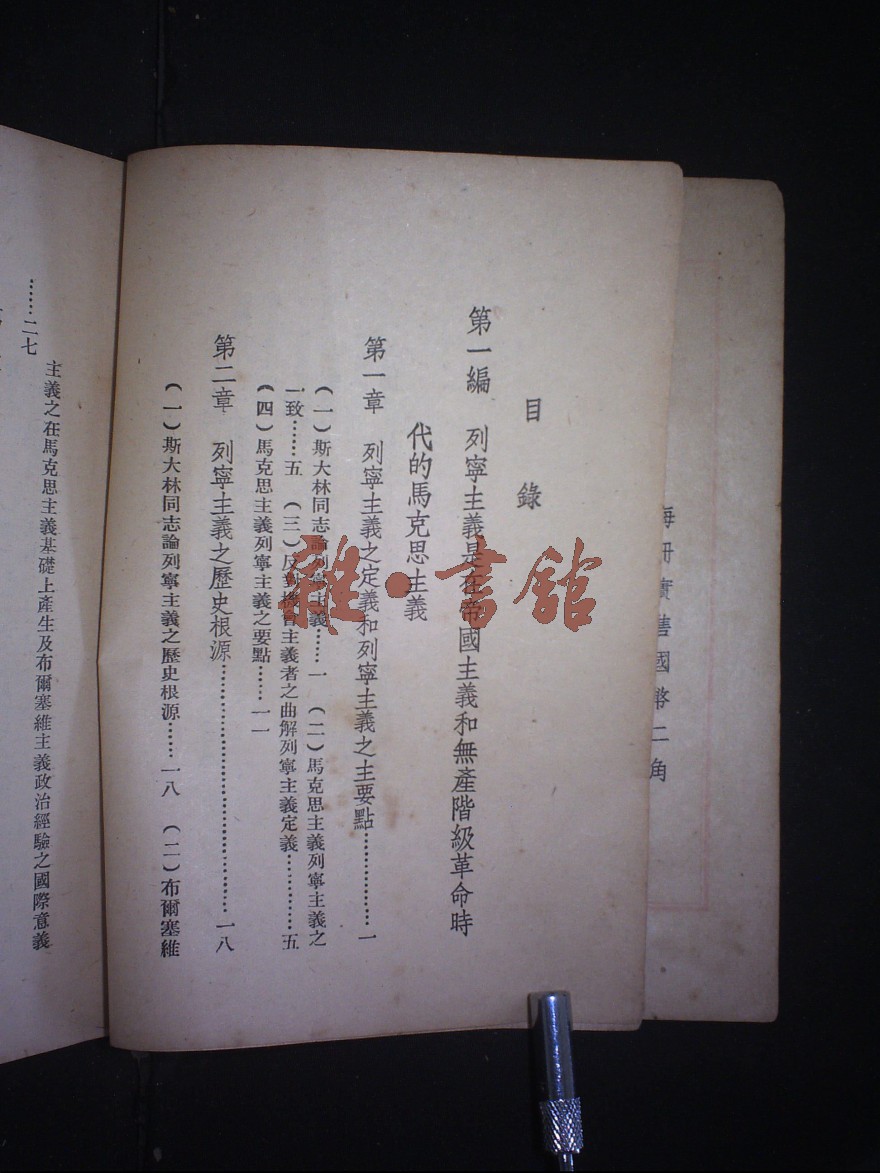 每册實售國幣二角
目錄
第一編 列寧主義是在帝國主義和無產階級革命時
代的馬克思主義
第一章 列寧主義之定義和列寧主義之主要點……………一
(一)斯大林同志論列寧主義……一 (二)馬克思主義列寧主義之
一致……五 (三)反對機會主義者之曲解列寧主義定義…………五
(四)馬克思主義列寧主義之要點……一一
第二章 列寧主義之歷史根源………………………………一八
(一)斯大林同志論列寧主義之歷史根源……一八 (二)布爾塞維
主義之在馬克思主義基礎上產生及布爾塞維主義政治經驗之國際意義
……二七
雜·書館